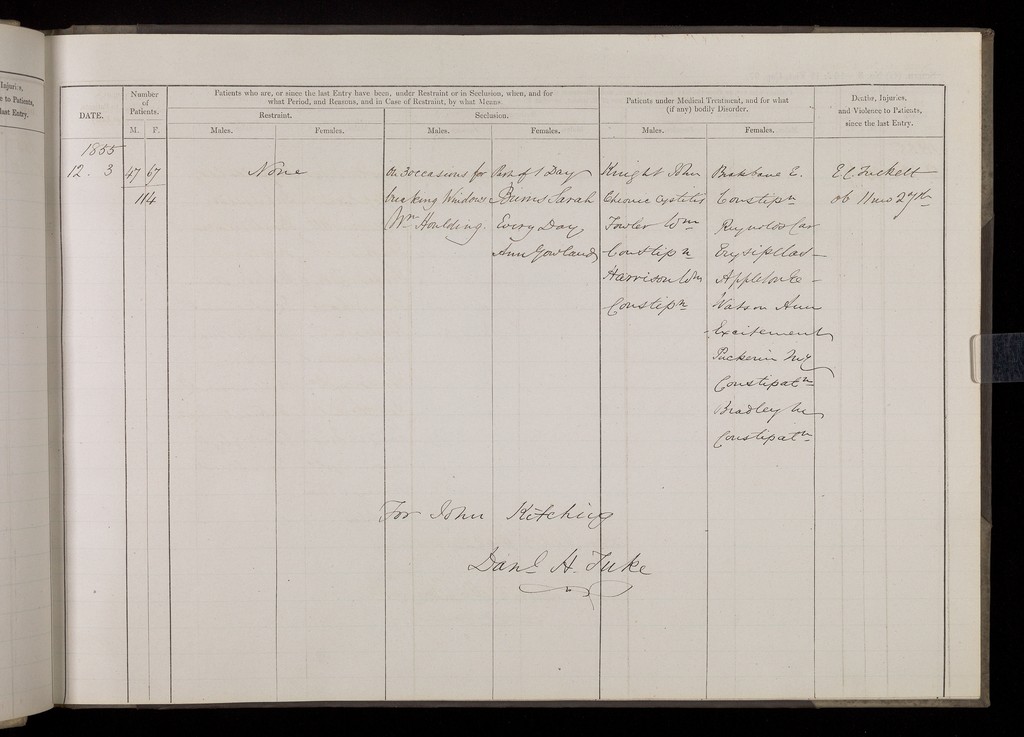 Injuries,
e to Patients,
last Entry.
DATE.
Number
of
Patients.
M. F.
Patients who are, or since the last Entry have been, under Restraint or in Seclusion, when, and for
what Period, and Reasons, and in Case of Restraint, by what Means.
Restraint.
Males. Females.
Seclusion.
Males. Females.
Patients under Medical Treatment, and for what
(if any) bodily Disorder.
Males. Females.
Deaths, Injuries,
and Violence to Patients,
since the last Entry.
1855
12 . 3
47 67
114
None
On 3 occasions for
breaking Windows
Wm Houlding.
Part of 1 Day
Burns Sarah
Every Day
Ann Gowland
Knight John
Chronic Cystitis
Fowler Wm
Constipn
Harrison Wm
Constipn
Brakbane E.
Constipn
Reynolds Car
Erysipelas
Appleton E
Watson Ann
Excitement
Puckerin My
Constipatn
Bradley M
Constipatn
E C Tuckett
ob 11 mo 27th
For John Kitching
Danl H. Tuke